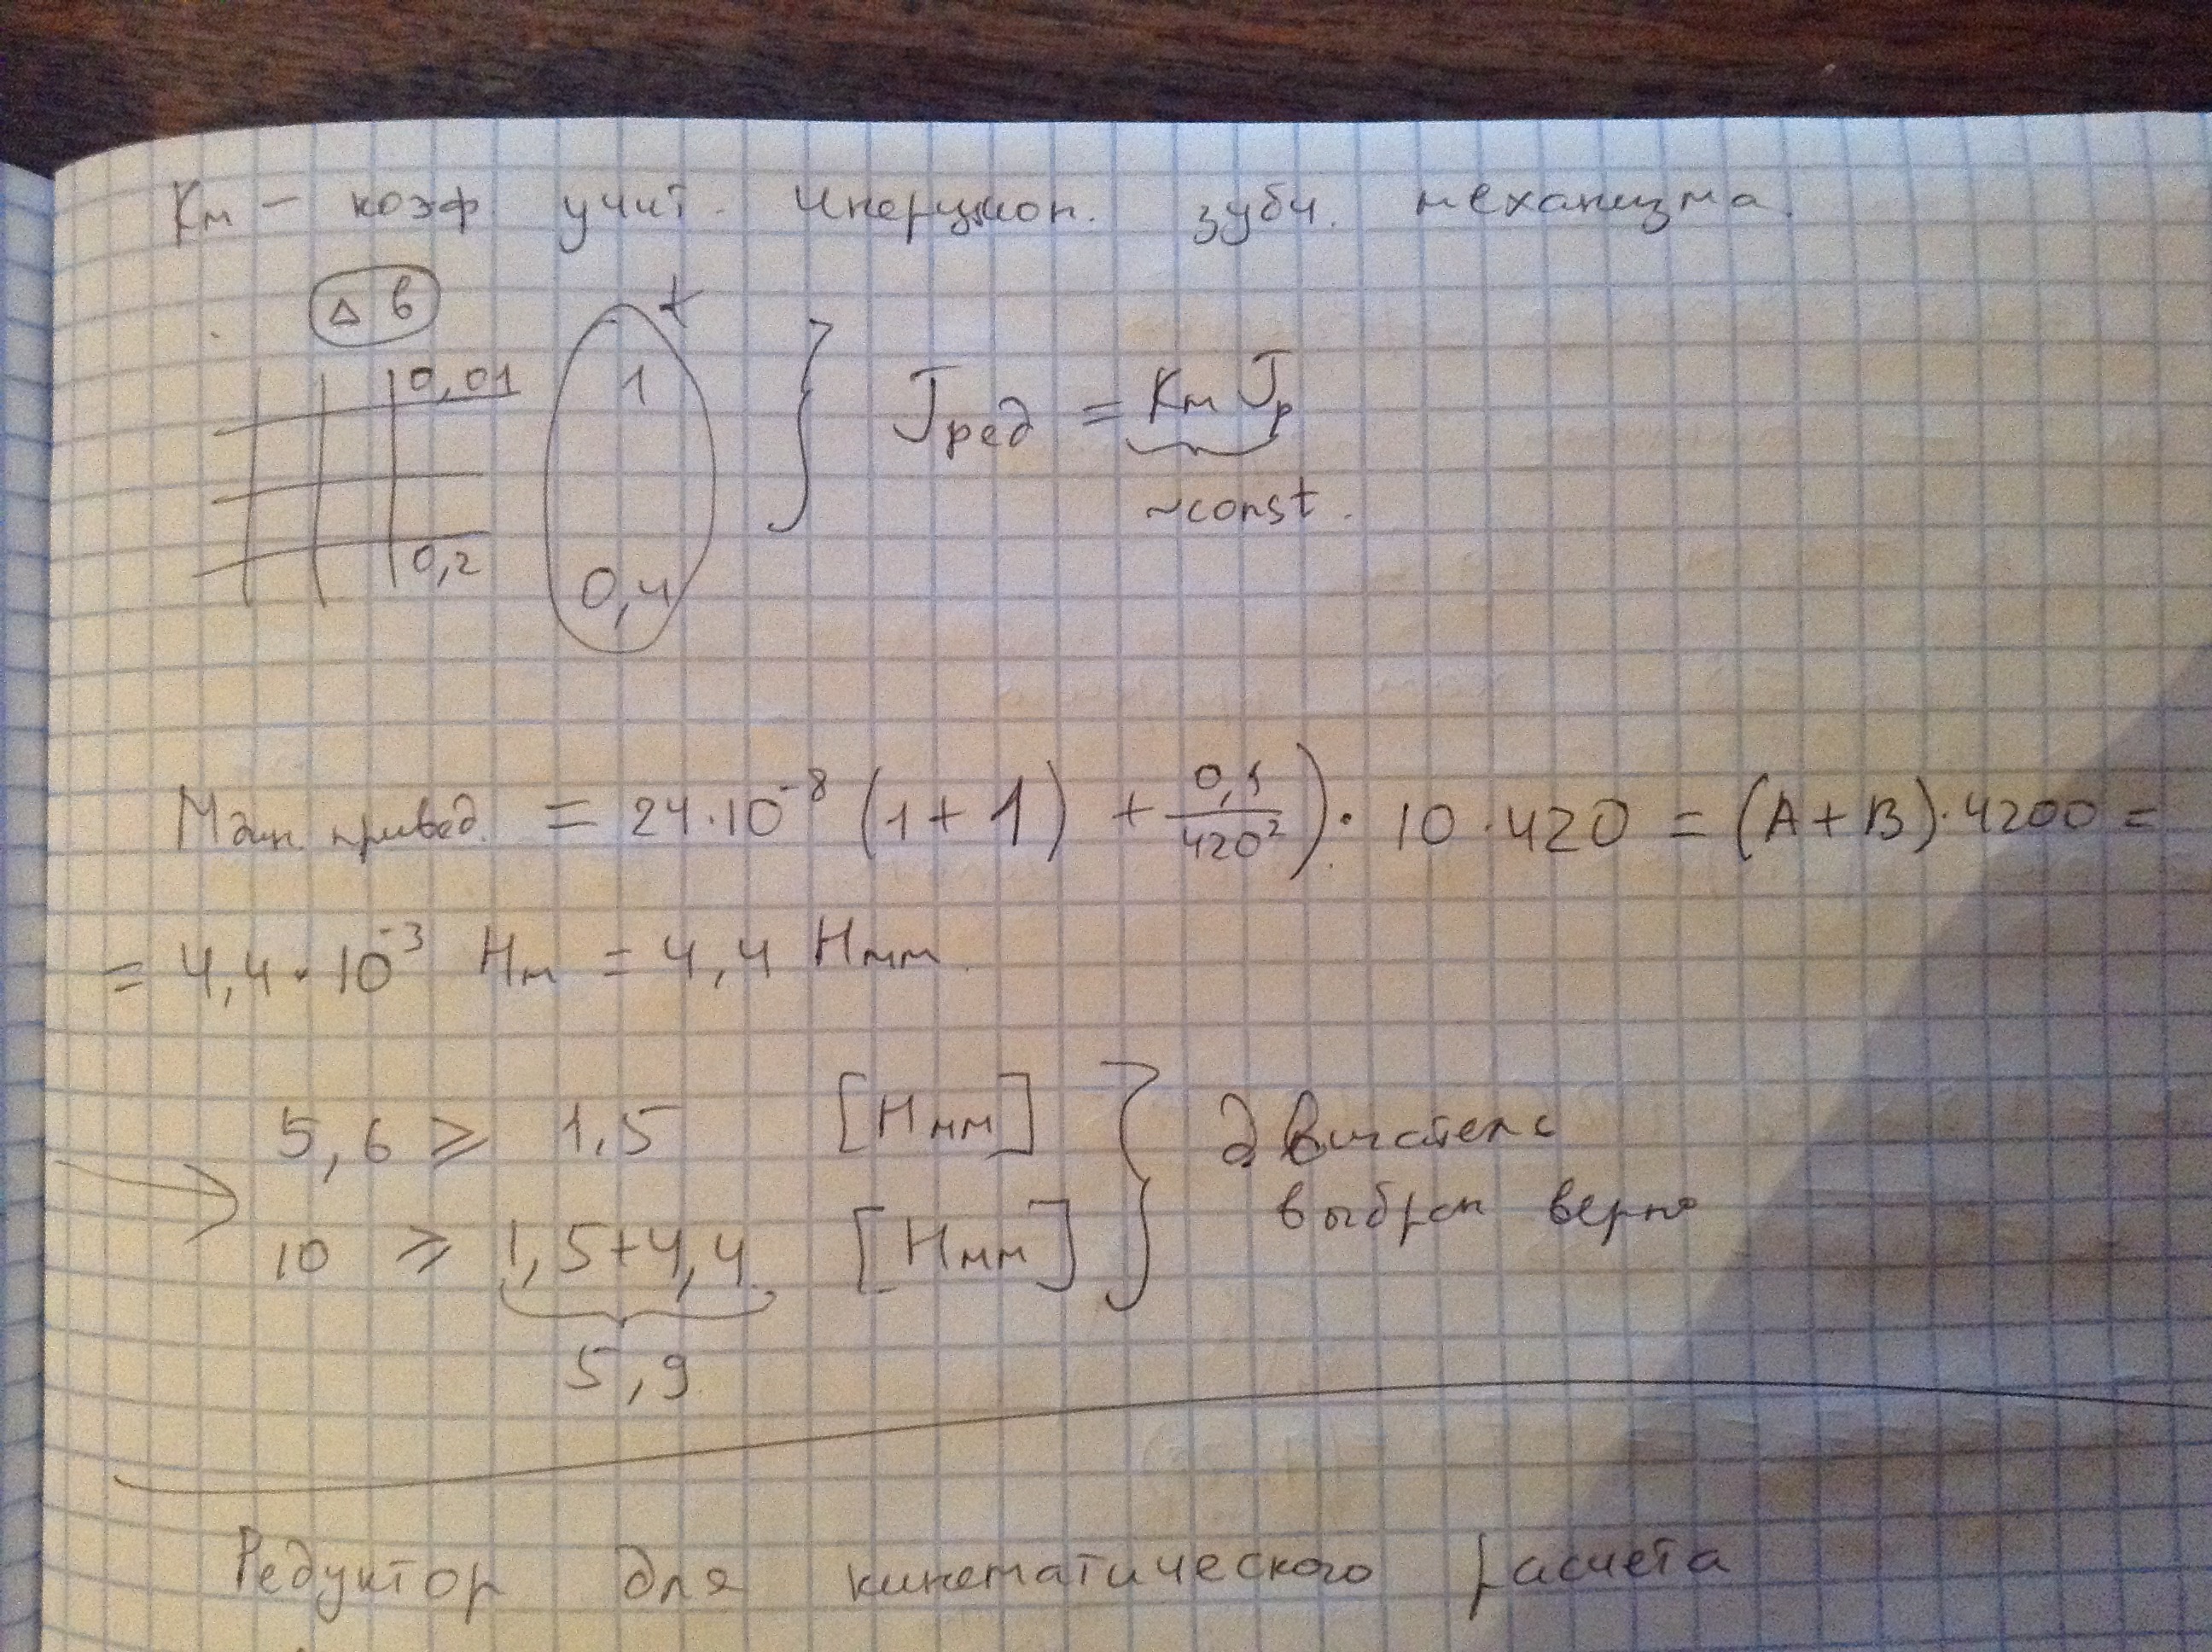 Kм – коэф. учит. инерцион. зубч. механизма.
Δ B
0,01
0,2
t
1
0,4
Jред = Kм Jр
~const.
Mдин. привед. = 24·10⁻⁸ (1+1) + 0,1/420²)· 10·420 = (A+B)·4200 =
= 4,4·10⁻³ Нм = 4,4 Нмм.
5,6 ≥ 1,5 [Нмм]
10 ≥ 1,5+4,4 [Нмм]
5,9
двигатель
выбран верно
Редуктор для кинематического расчета